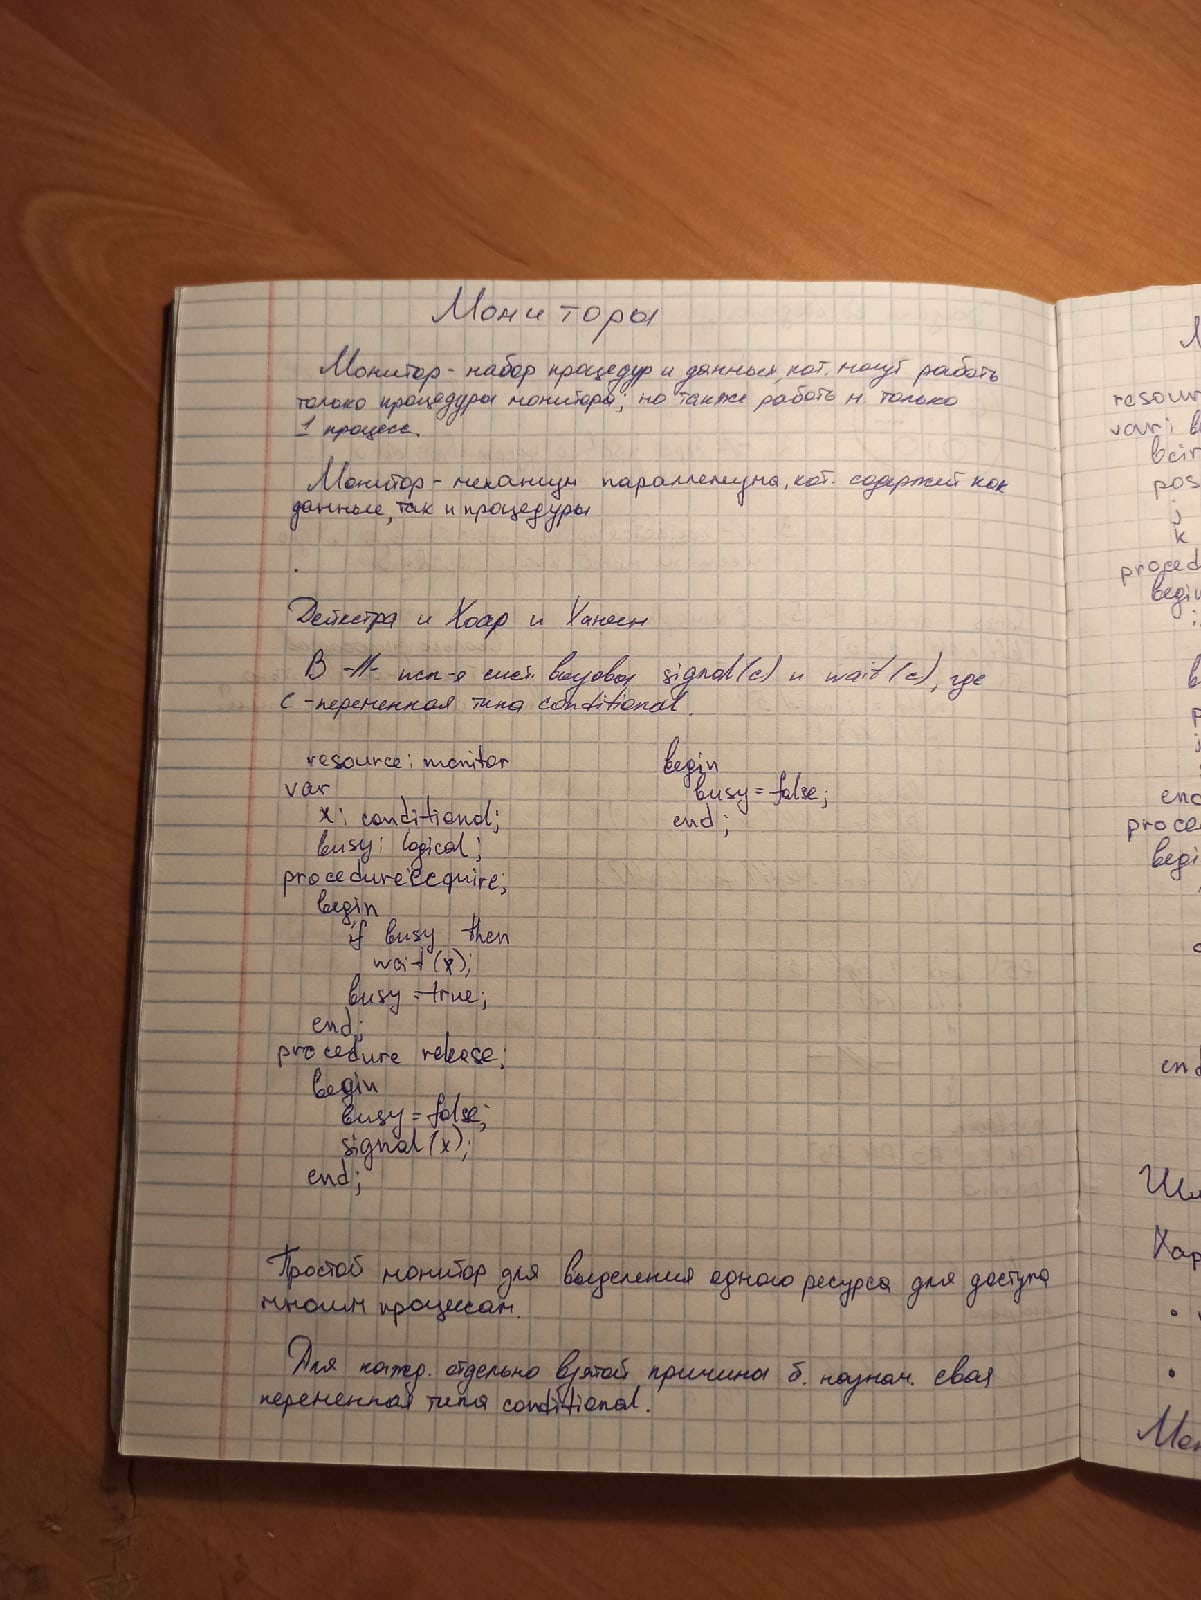 Мониторы
Монитор - набор процедур и данных, кот. могут работь
только процедуры монитора, но также работь м. только
1 процесс.
Монитор - механизм параллелизма, кот. содержит как
данные, так и процедуры
Дейкстра и Хоар и Хансен
В -//- исп-я сист. вызовы signal(c) и wait(c), где
c - переменная типа conditional.
resource: monitor
var
x: conditional;
busy: logical;
procedure acquire;
begin
if busy then
wait(x);
busy = true;
end;
procedure release;
begin
busy = false;
signal(x);
end;
begin
busy = false;
end;
Простой монитор для выделения одного ресурса для доступа
многим процессам.
Для кажд. отдельно взятой причины б. назнач. своя
переменная типа conditional.
resour
var: b
pos
j
k
proced
begin
end
proce
begi
end
Хар